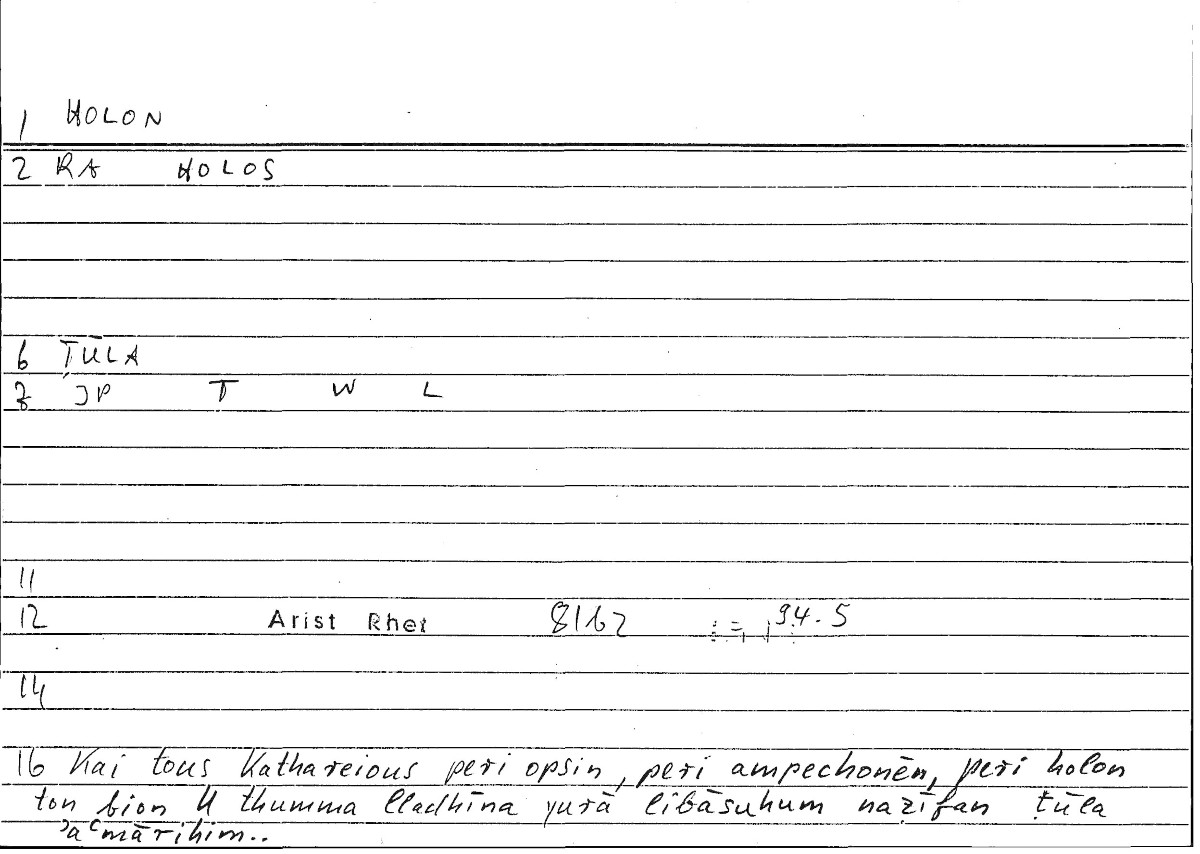 1 HOLON
2 RA HOLOS
6 ṬŪLA
8 JP Ṭ W L
11
12 Arist Rhet 8162 94.5
14
16 Kai tous Kathareious peri opsin, peri ampechonēn, peri holon
ton bion // thumma lladhīna yurā libāsuhum naẓīfan ṭūla
ʾaʿmārihim..